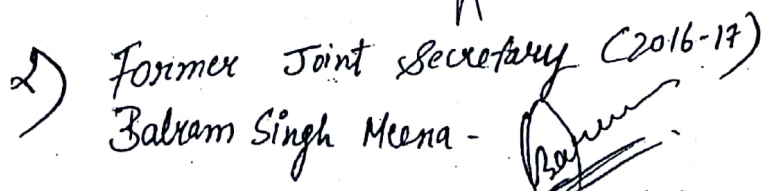 2) Former Joint Secretary (2016-17)
Balram Singh Meena -